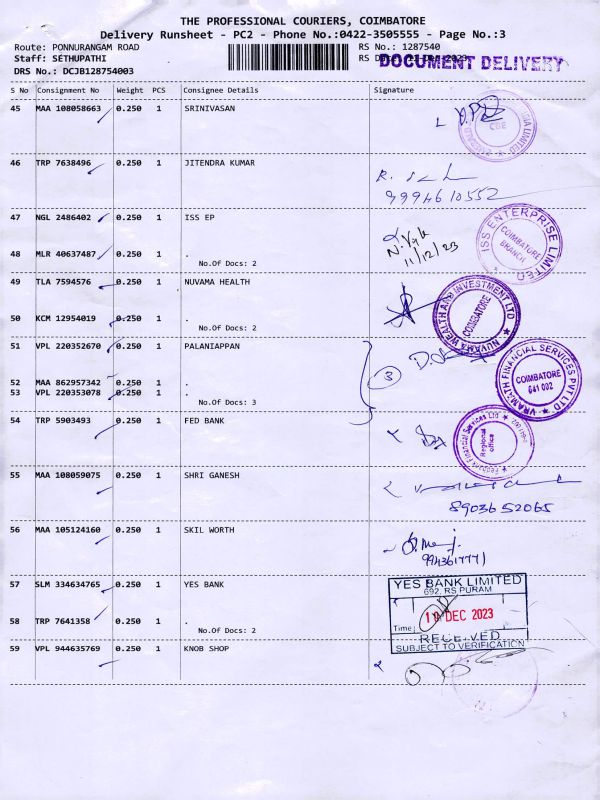 THE PROFESSIONAL COURIERS, COIMBATORE
Delivery Runsheet - PC2 - Phone No.:0422-3505555 - Page No.:3
Route: PONNURANGAM ROAD
RS No.: 1287540
Staff: SETHUPATHI
DOCUMENT DELIVERY
DRS No.: DCJB128754003
S No Consignment No Weight PCS Consignee Details Signature
45 MAA 108058663 0.250 1 SRINIVASAN
46 TRP 7638496 0.250 1 JITENDRA KUMAR
9994610552
47 NGL 2486402 0.250 1 ISS EP
ISS ENTERPRISE LIMITED
COIMBATORE
BRANCH
48 MLR 40637487 0.250 1 .
11/12/23
No.Of Docs: 2
49 TLA 7594576 0.250 1 NUVAMA HEALTH
NUVAMA WEALTH AND INVESTMENT LTD
COIMBATORE
50 KCM 12954019 0.250 1 .
No.Of Docs: 2
51 VPL 220352670 0.250 1 PALANIAPPAN
3
VRAMATH FINANCIAL SERVICES PVT LTD
COIMBATORE
641 002
52 MAA 862957342 0.250 1 .
53 VPL 220353078 0.250 1 .
No.Of Docs: 3
54 TRP 5903493 0.250 1 FED BANK
Fedbank Financial Services Ltd
Regional
office
55 MAA 108059075 0.250 1 SHRI GANESH
8903652065
56 MAA 105124160 0.250 1 SKIL WORTH
57 SLM 334634765 0.250 1 YES BANK
YES BANK LIMITED
692, RS PURAM
DEC 2023
Time
RECEIVED
SUBJECT TO VERIFICATION
58 TRP 7641358 0.250 1 .
No.Of Docs: 2
59 VPL 944635769 0.250 1 KNOB SHOP